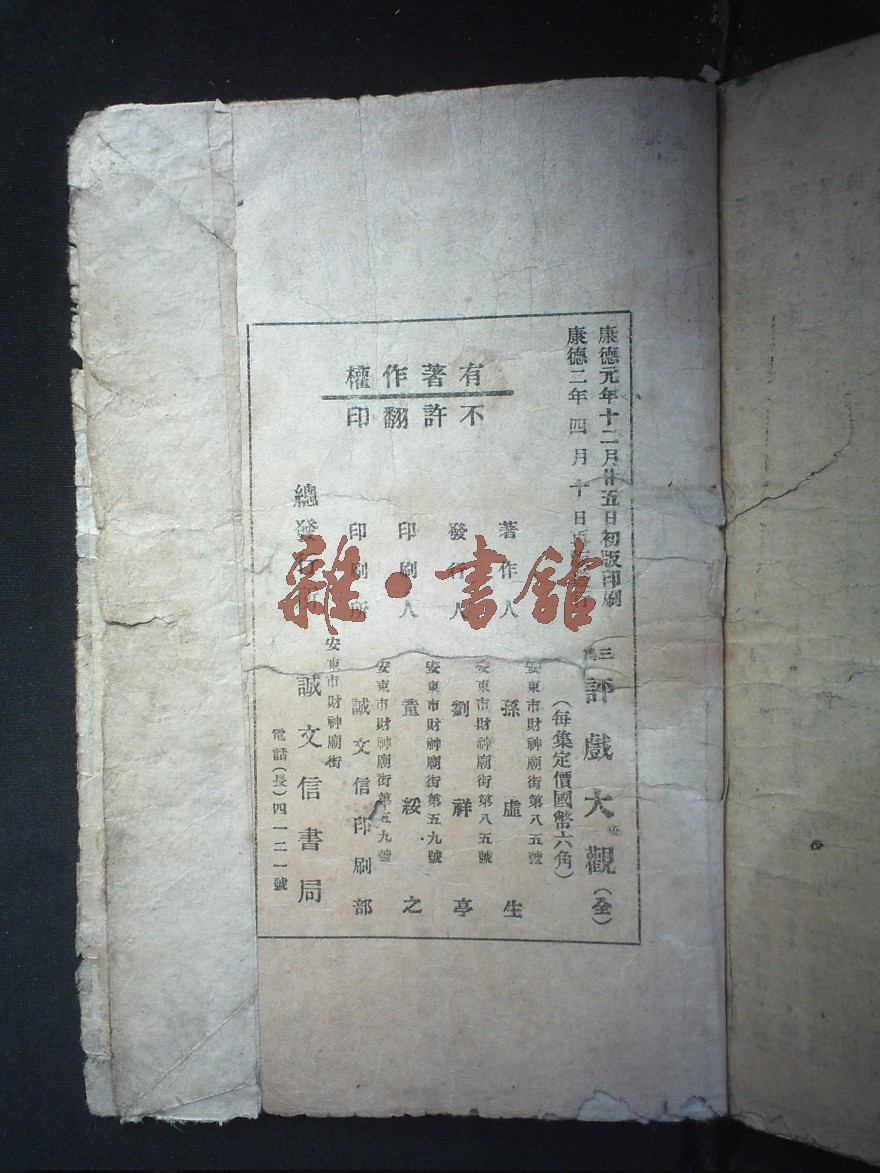 康德元年十二月廿五日初版印刷
康德二年四月十日
三
評戲大觀(全)
(每集定價國幣六角)
有著作權
不許翻印
著作人
安東市財神廟街第八五號
孫虛生
發行人
安東市財神廟街第八五號
劉祥亭
印刷人
安東市財神廟街第五九號
童綏之
印刷所
安東市財神廟街第五九號
誠文信印刷部
總發行所
安東市財神廟街
誠文信書局
電話(長)四一二一號
雜·書館